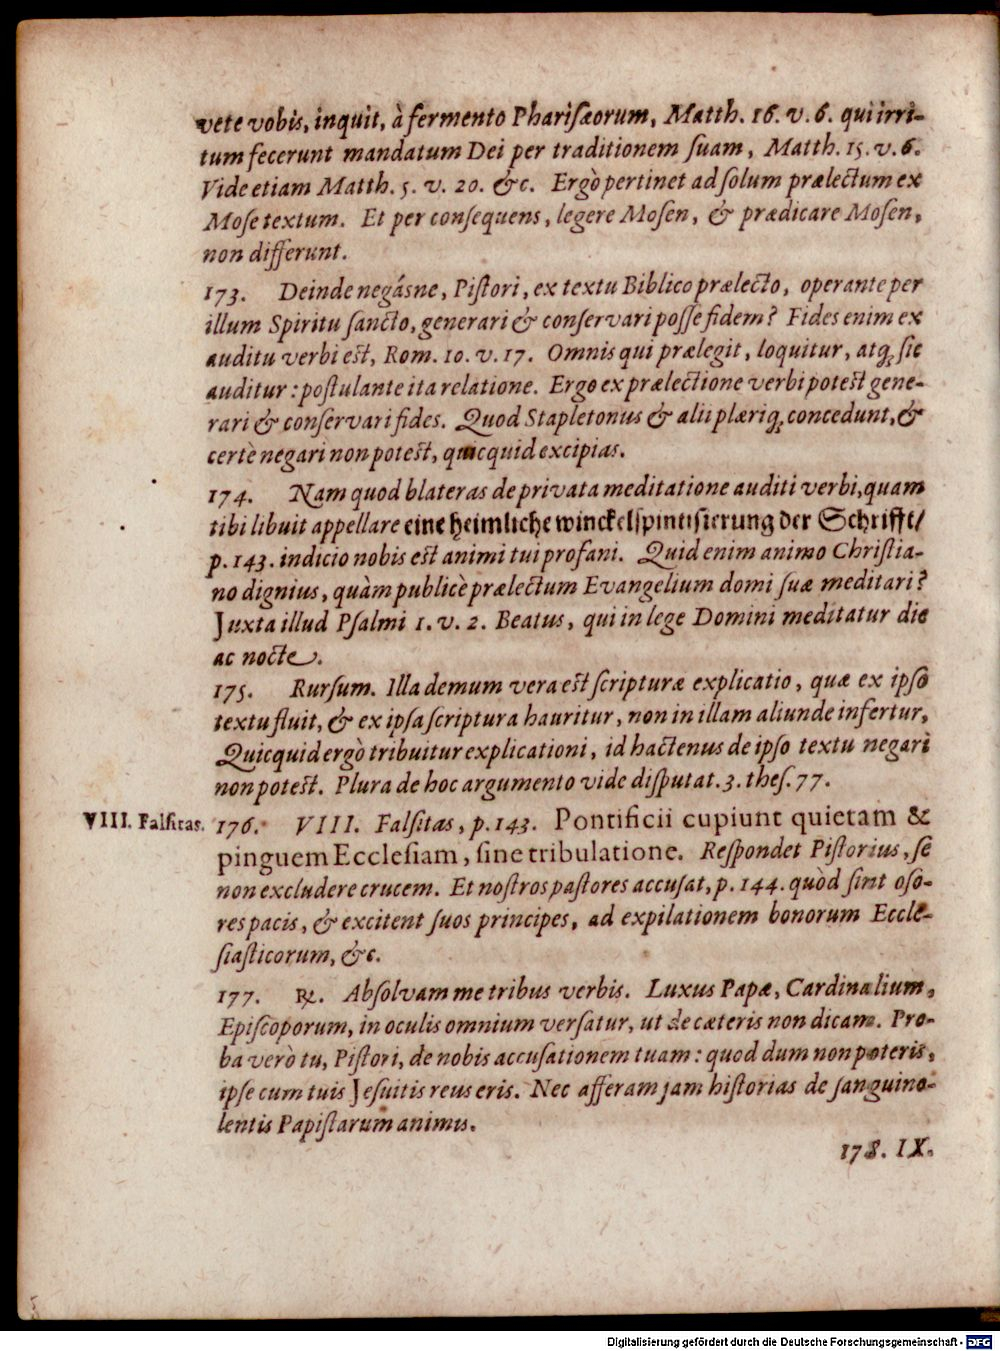 vete vobis, inquit, à fermento Pharisæorum, Matth. 16. v. 6. qui irri-
tum fecerunt mandatum Dei per traditionem suam, Matth. 15. v. 6.
Vide etiam Matth. 5. v. 20. &c. Ergò pertinet ad solum prælectum ex
Mose textum. Et per consequens, legere Mosen, & prædicare Mosen,
non differunt.
173. Deinde negásne, Pistori, ex textu Biblico prælecto, operante per
illum Spiritu sancto, generari & conservari posse fidem? Fides enim ex
auditu verbi est, Rom. 10. v. 17. Omnis qui prælegit, loquitur, atq; sic
auditur: postulante ita relatione. Ergo ex prælectione verbi potest gene-
rari & conservari fides. Quod Stapletonus & alii plæriq; concedunt, &
certè negari non potest, quicquid excipias.
174. Nam quod blateras de privata meditatione auditi verbi, quam
tibi libuit appellare eine heimliche winckelspintisierung der Schrifft/
p. 143. indicio nobis est animi tui profani. Quid enim animo Christia-
no dignius, quàm publicè prælectum Evangelium domi suæ meditari?
Juxta illud Psalmi 1. v. 2. Beatus, qui in lege Domini meditatur die
ac nocte.
175. Rursum. Illa demum vera est scripturæ explicatio, quæ ex ipso
textu fluit, & ex ipsa scriptura hauritur, non in illam aliunde infertur,
Quicquid ergò tribuitur explicationi, id hactenus de ipso textu negari
non potest. Plura de hoc argumento vide disputat. 3. thes. 77.
VIII. Falsitas. 176. VIII. Falsitas, p. 143. Pontificii cupiunt quietam &
pinguem Ecclesiam, sine tribulatione. Respondet Pistorius, se
non excludere crucem. Et nostros pastores accusat, p. 144. quòd sint oso-
res pacis, & excitent suos principes, ad expilationem bonorum Eccle-
siasticorum, &c.
177. ℞. Absolvam me tribus verbis. Luxus Papæ, Cardinalium,
Episcoporum, in oculis omnium versatur, ut de cæteris non dicam. Pro-
ba verò tu, Pistori, de nobis accusationem tuam: quod dum non poteris,
ipse cum tuis Jesuitis reus eris. Nec afferam jam historias de sanguino-
lentis Papistarum animis.
178. IX.
Digitalisierung gefördert durch die Deutsche Forschungsgemeinschaft - DFG